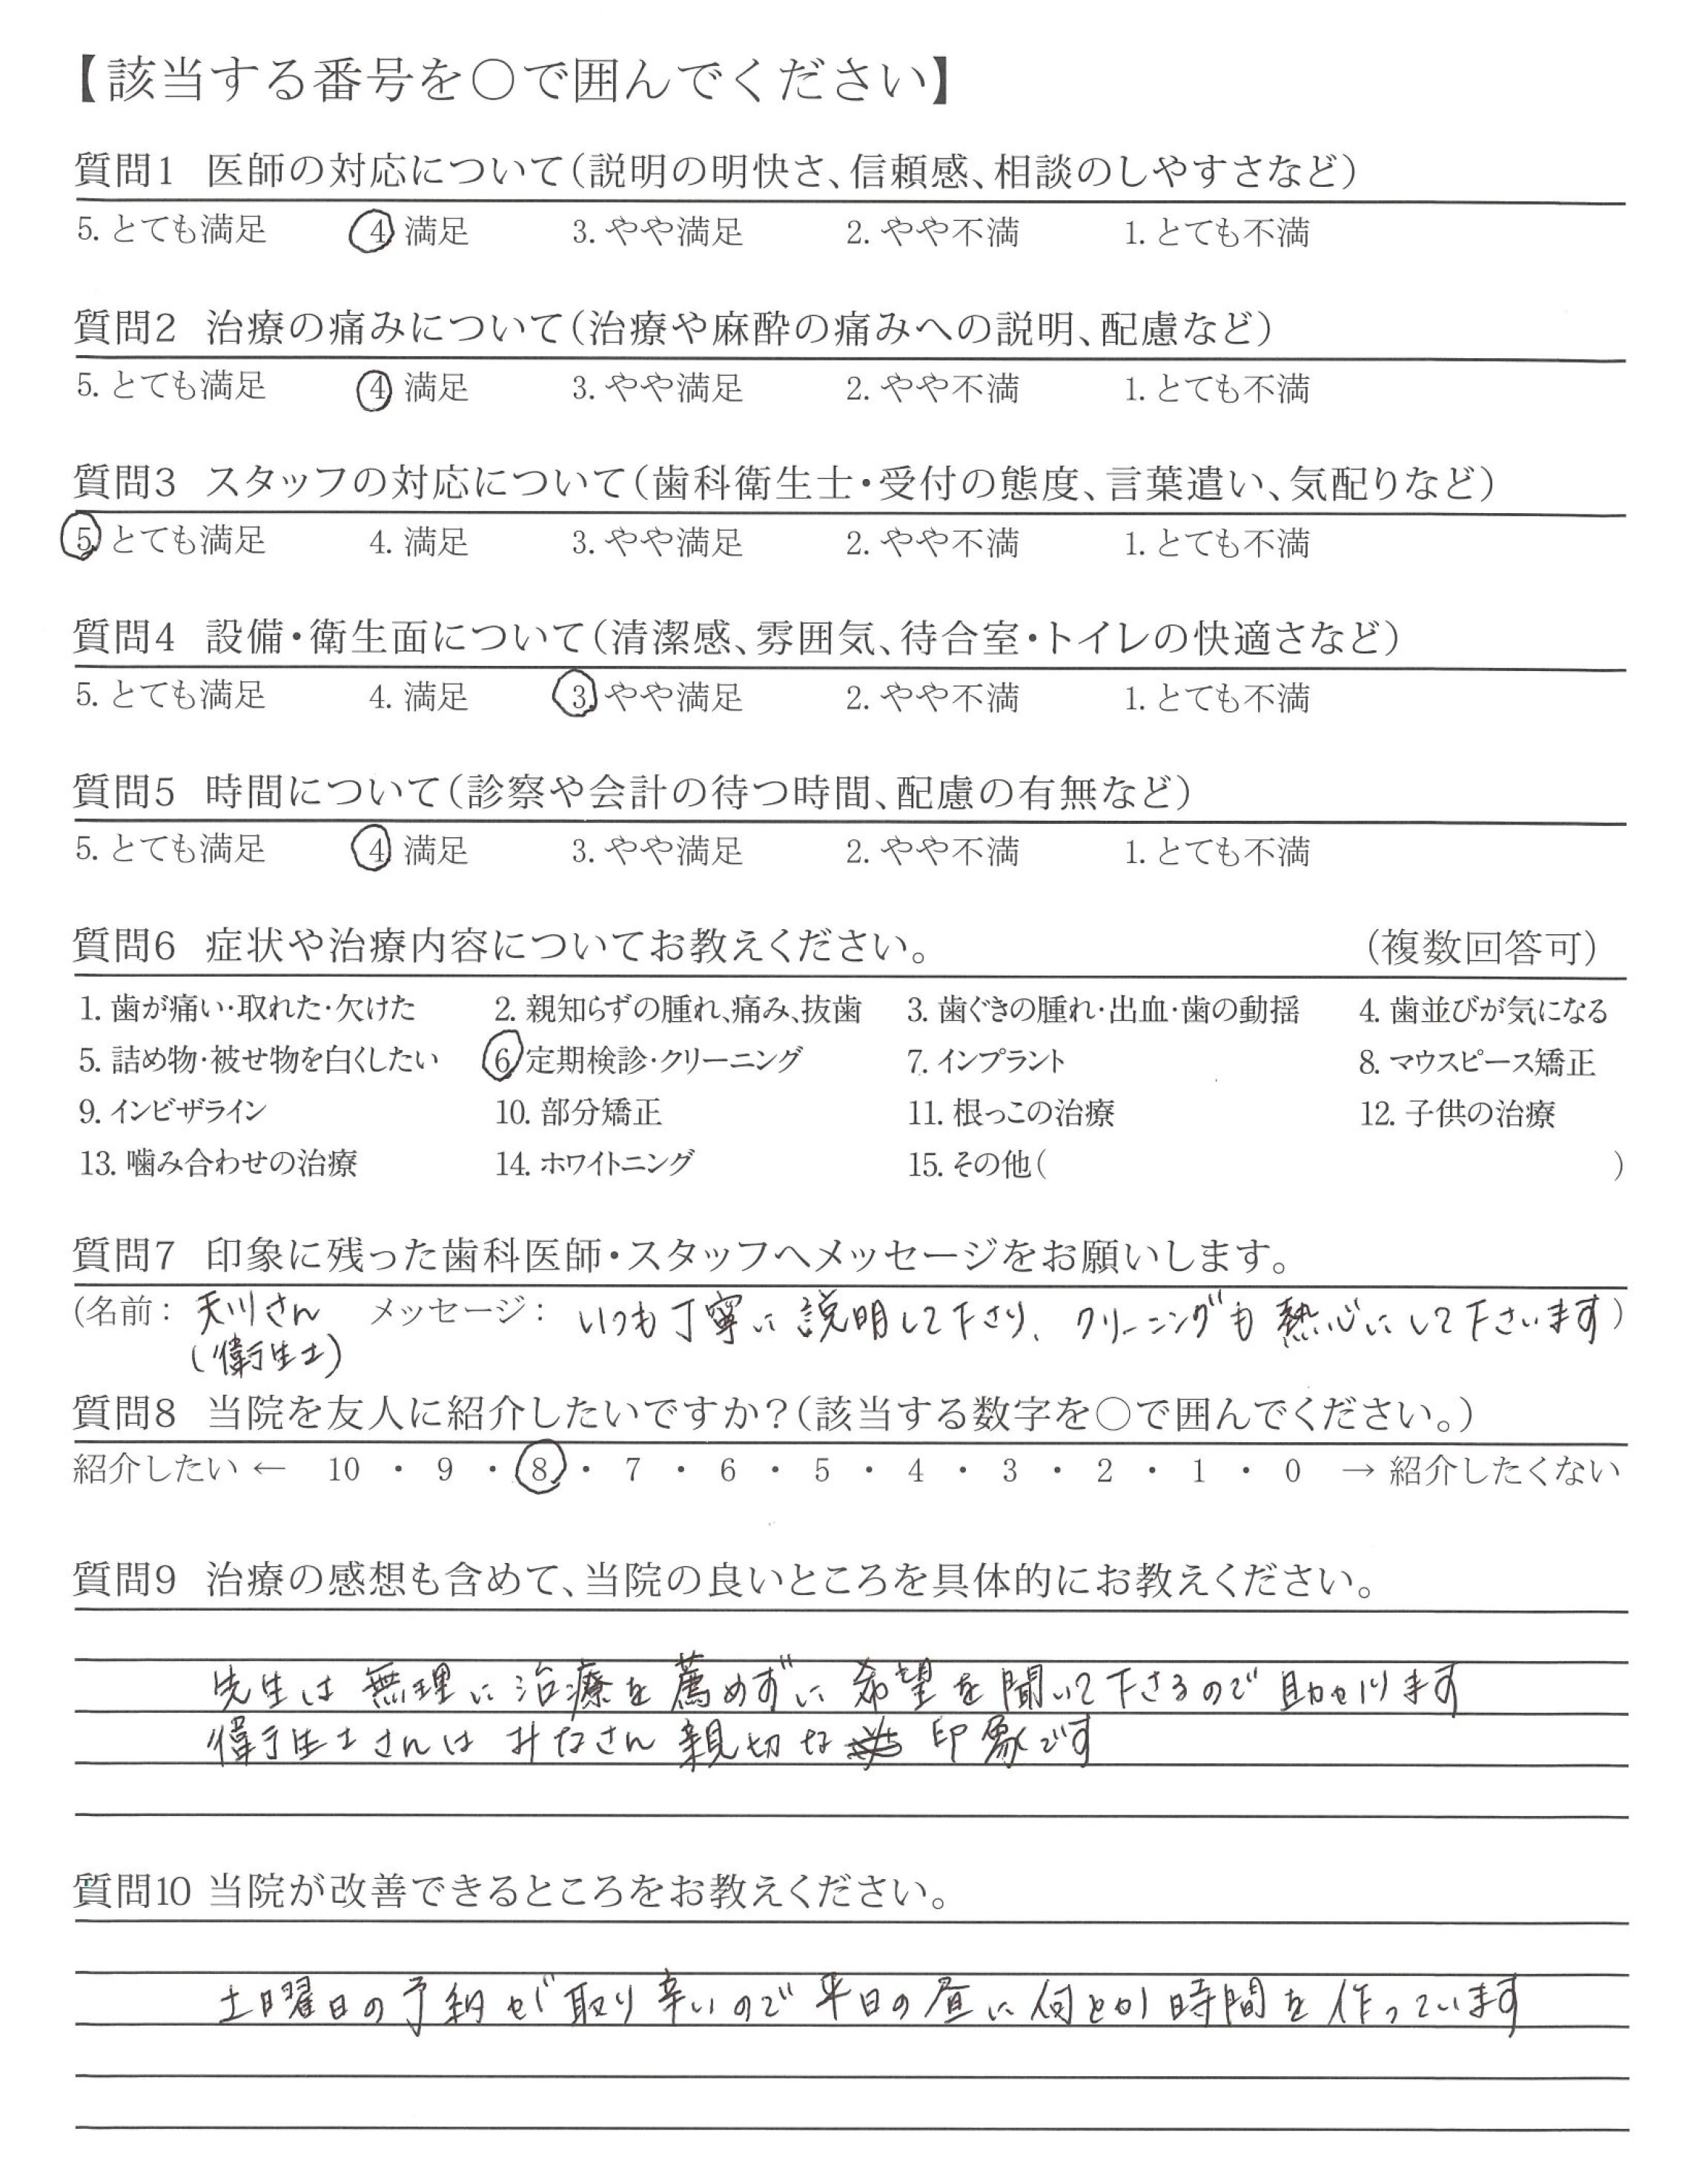 【該当する番号を〇で囲んでください】
質問1 医師の対応について（説明の明快さ、信頼感、相談のしやすさなど）
5. とても満足 4. 満足 3. やや満足 2. やや不満 1. とても不満
質問2 治療の痛みについて（治療や麻酔の痛みへの説明、配慮など）
5. とても満足 4. 満足 3. やや満足 2. やや不満 1. とても不満
質問3 スタッフの対応について（歯科衛生士・受付の態度、言葉遣い、気配りなど）
5. とても満足 4. 満足 3. やや満足 2. やや不満 1. とても不満
質問4 設備・衛生面について（清潔感、雰囲気、待合室・トイレの快適さなど）
5. とても満足 4. 満足 3. やや満足 2. やや不満 1. とても不満
質問5 時間について（診察や会計の待つ時間、配慮の有無など）
5. とても満足 4. 満足 3. やや満足 2. やや不満 1. とても不満
質問6 症状や治療内容についてお教えください。 （複数回答可）
1. 歯が痛い・取れた・欠けた 2. 親知らずの腫れ、痛み、抜歯 3. 歯ぐきの腫れ・出血・歯の動揺 4. 歯並びが気になる
5. 詰め物・被せ物を白くしたい 6. 定期検診・クリーニング 7. インプラント 8. マウスピース矯正
9. インビザライン 10. 部分矯正 11. 根っこの治療 12. 子供の治療
13. 噛み合わせの治療 14. ホワイトニング 15. その他（ ）
質問7 印象に残った歯科医師・スタッフへメッセージをお願いします。
（名前： 天川さん メッセージ： いつも丁寧に説明して下さり、クリーニングも熱心にして下さいます）
（衛生士）
質問8 当院を友人に紹介したいですか？（該当する数字を〇で囲んでください。）
紹介したい ← 10 ・ 9 ・ 8 ・ 7 ・ 6 ・ 5 ・ 4 ・ 3 ・ 2 ・ 1 ・ 0 → 紹介したくない
質問9 治療の感想も含めて、当院の良いところを具体的にお教えください。
先生は無理に治療を薦めずに希望を聞いて下さるので助かります
衛生士さんはみなさん親切な印象です
質問10 当院が改善できるところをお教えください。
土曜日の予約が取り辛いので平日の昼に何とか時間を作っています